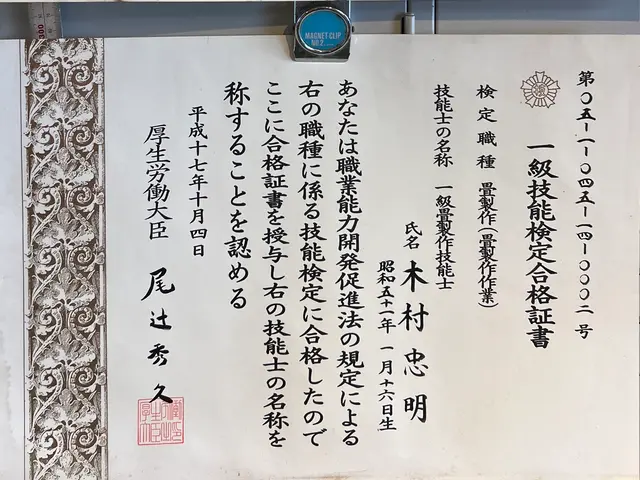 第〇五-一-〇四五-一四-〇〇〇二号
一級技能検定合格証書
検定職種 畳製作(畳製作作業)
技能士の名称 一級畳製作技能士
氏名 木村忠明
昭和五十一年一月十六日生
あなたは職業能力開発促進法の規定による
右の職種に係る技能検定に合格したので
ここに合格証書を授与し右の技能士の名称を
称することを認める
平成十七年十月四日
厚生労働大臣 尾辻秀久
MAGNET CLIP